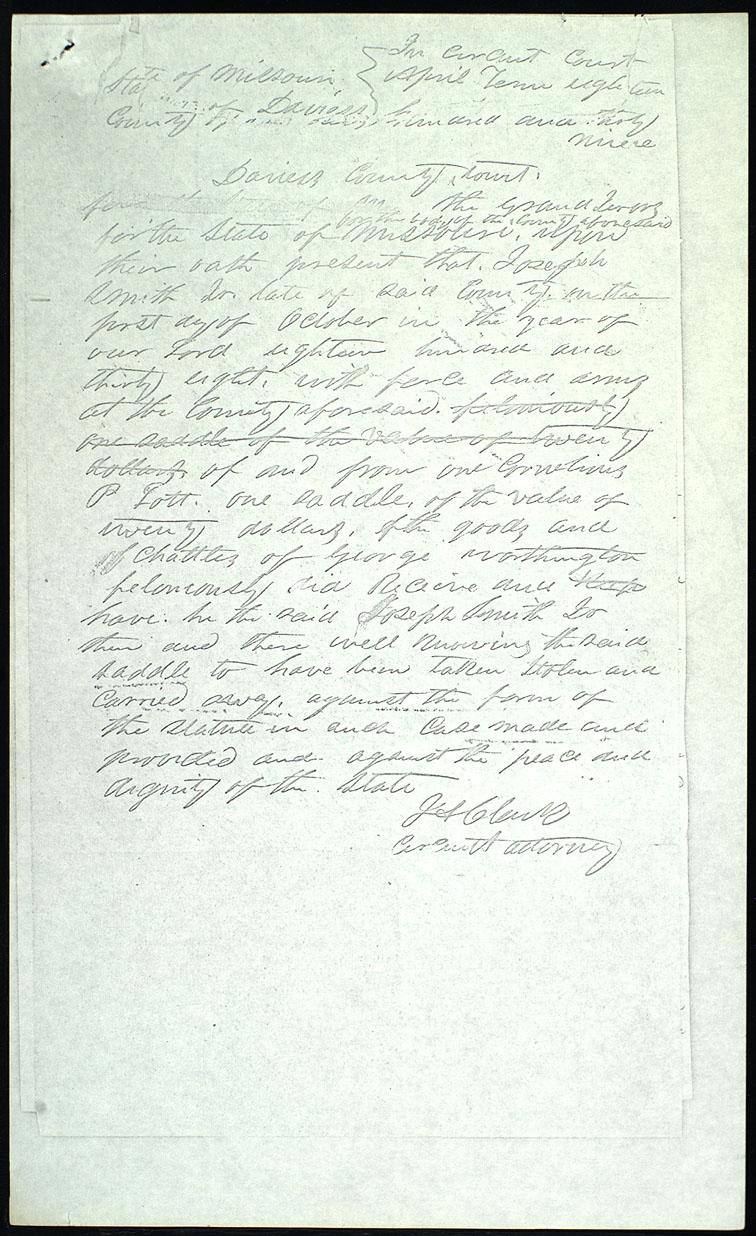 State of Missouri
County of Daviess
In circuit court
April Term eighteen
hundred and thirty
niene
Daviess County, towit.
The Grand Jurors
for the body of the County aforesaid
for the State of Missouri, upon
their oath present that, Joseph
Smith Jr. late of said County. on the
first day of October in the year of
our Lord eighteen hundred and
thirty eight, with force and arms
at the County aforesaid. feloniously
one saddle of the value of twenty
dollars, of and from one Cornelius
P Lott. one saddle, of the value of
twenty dollars, of the goods and
chattles of George Worthington
feloniously did Receive and
have. he the said Joseph Smith Jr
then and there well knowing the said
saddle to have been taken stolen and
carried away, against the form of
the statute in such case made and
provided and against the peace and
dignity of the State
J A Clark
circuit attorney